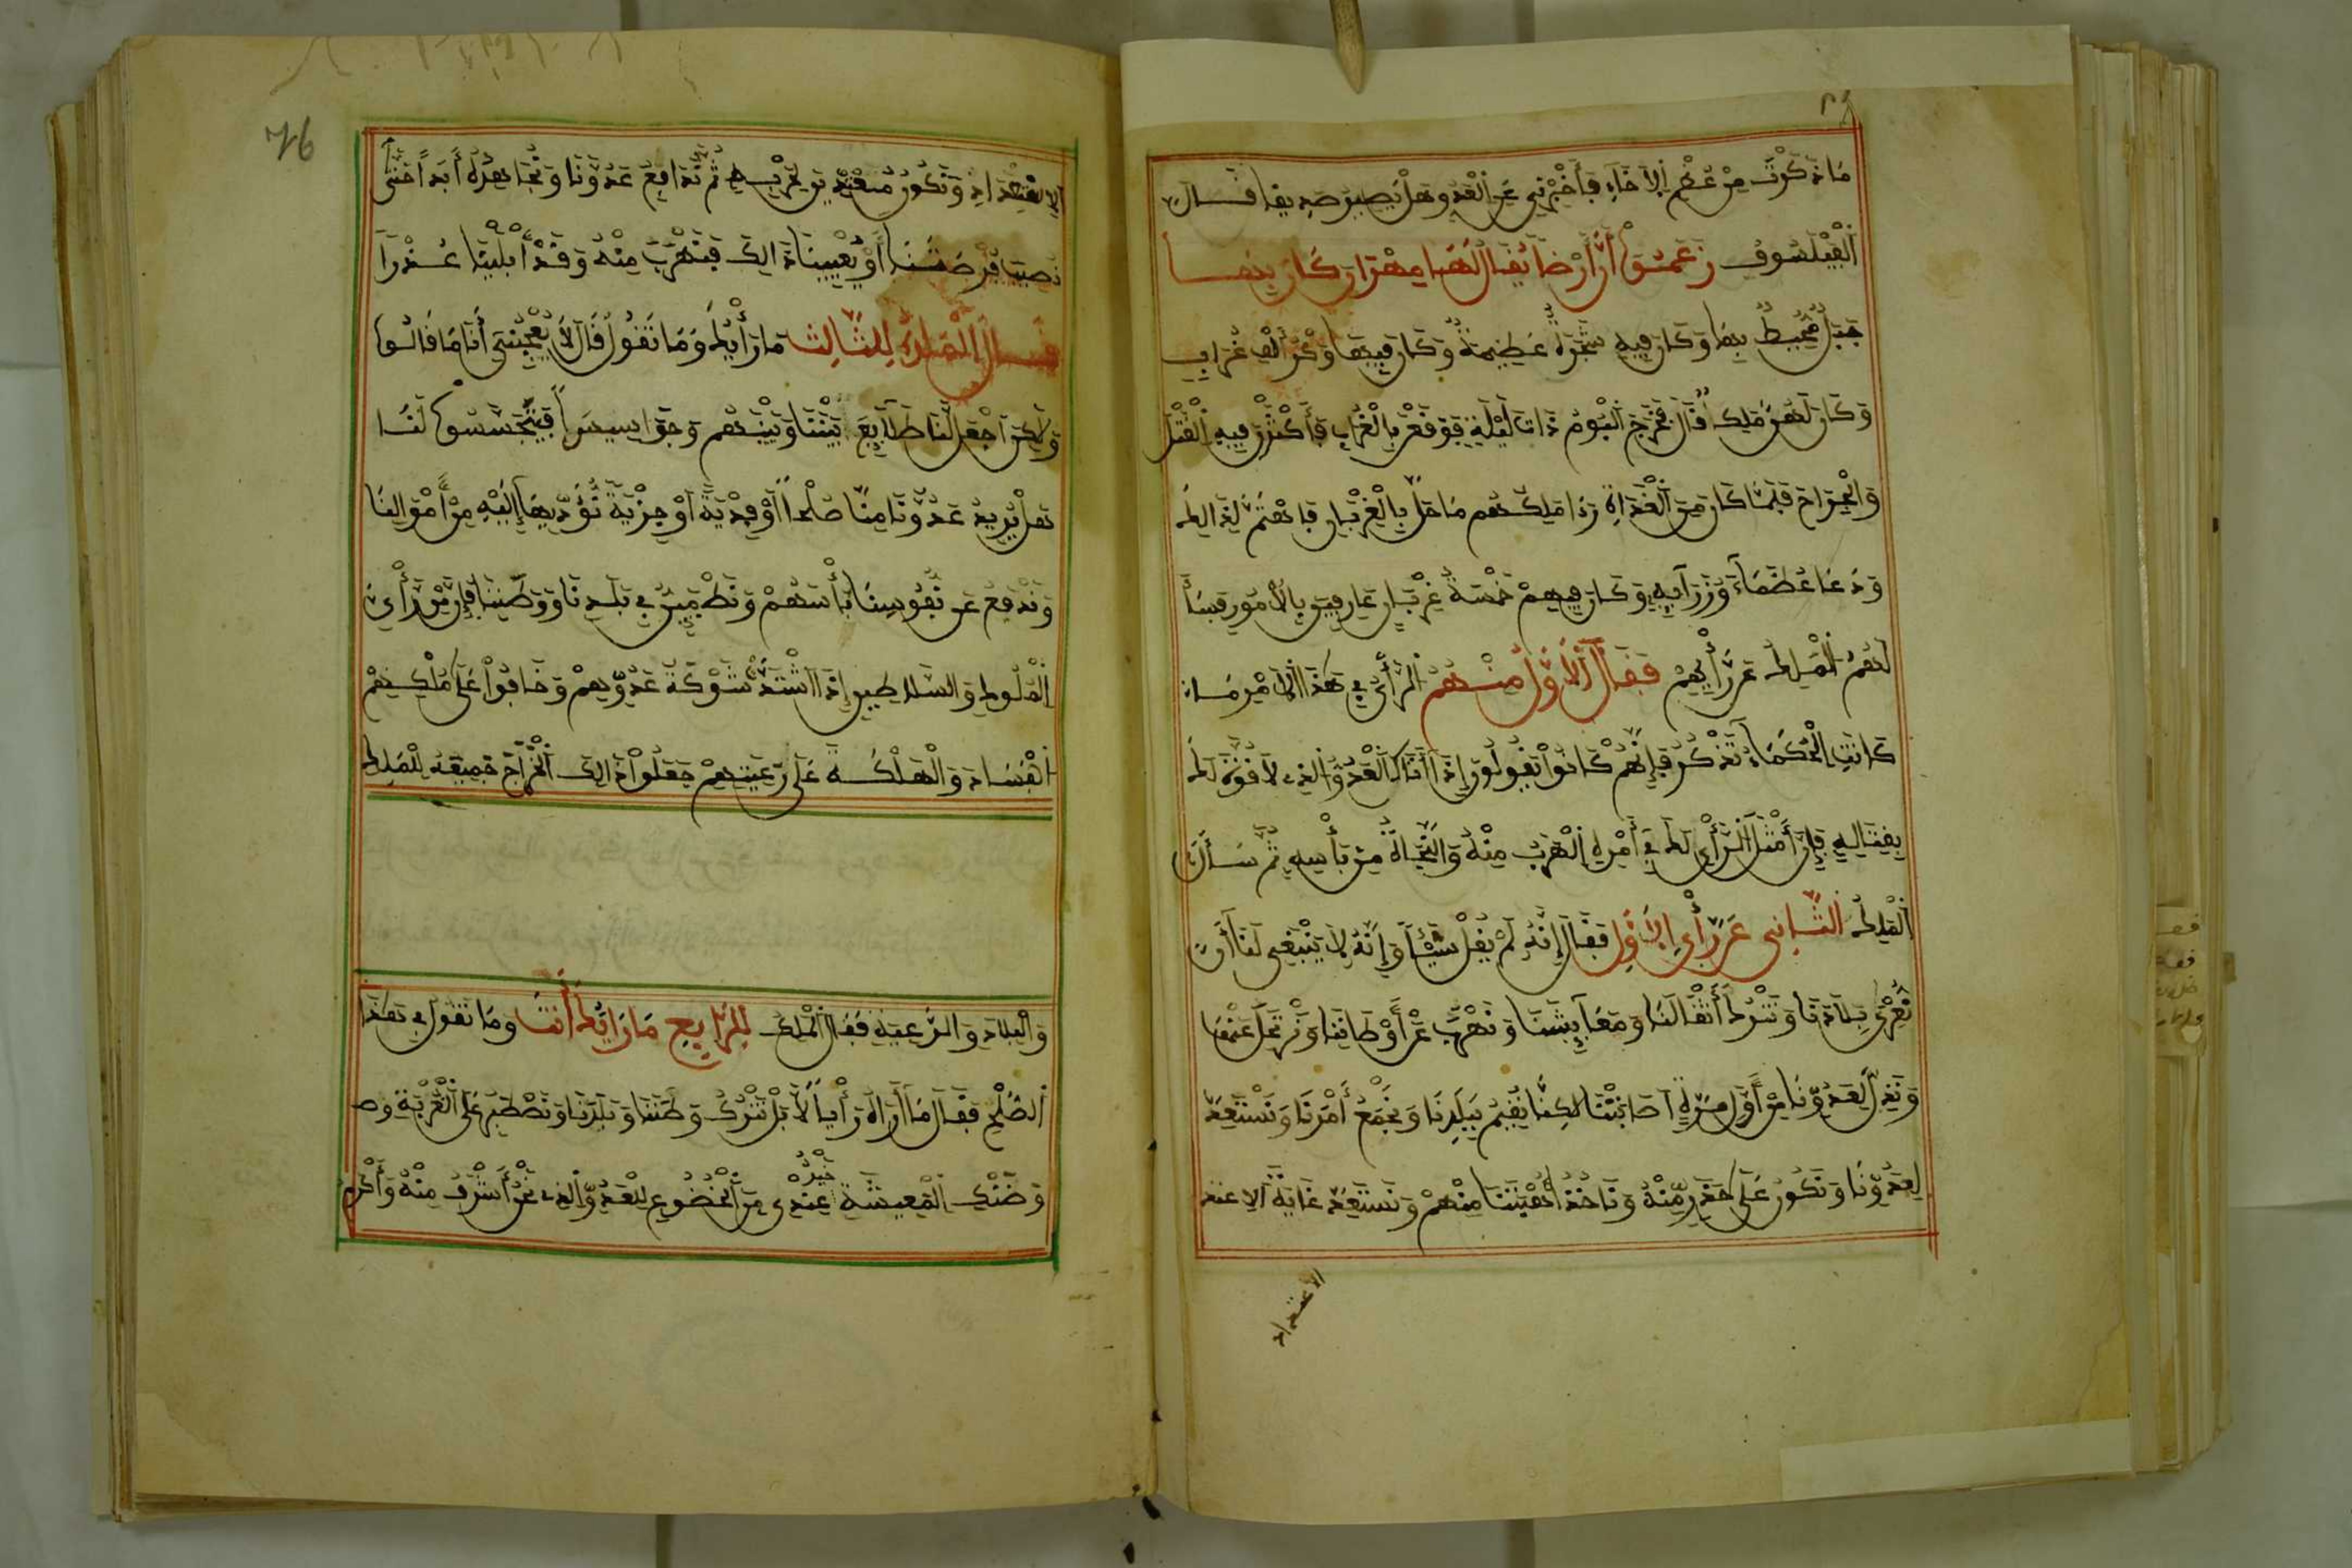 مَا ذَكَرْتَ مِنْ عُظْمِ الإخَاءِ فَأَخْبِرْنِي عَنِ الْعَدُوِّ هَلْ يَصِيرُ صَدِيقًا فَقَالَ
الْفَيْلَسُوفُ زَعَمُوا أَنَّ أَرْضًا يُقَالُ لَهَا كَانَ بِهَا
جَبَلٌ مُحِيطٌ بِهَا وَكَانَ فِيهِ شَجَرَةٌ عَظِيمَةٌ وَكَانَ فِيهَا وَكْرُ أَلْفِ غُرَابٍ
وَكَانَ لَهُنَّ مَلِكٌ قَالَ فَخَرَجَ الْبُومُ ذَاتَ لَيْلَةٍ فَوَقَعْنَ بِالْغُرَابِ فَأَكْثَرْنَ فِيهِ الْقَتْلَ
وَالْجِرَاحَ فَلَمَّا كَانَ مِنَ الْغَدَاةِ رَءَا مَلِكُهُمْ مَا حَلَّ بِالْغِرْبَانِ فَاهْتَمَّ لِذَالِكَ
وَدَعَا عُظَمَاءَ وُزَرَآيِهِ وَكَانَ فِيهِمْ خَمْسَةُ غِرْبَانٍ عَارِفِينَ بِالْأُمُورِ فَسَأَلَ
لَهُمُ الْمَلِكُ عَنْ رَأْيِهِمْ فَقَالَ الْأَوَّلُ مِنْهُمْ الرَّأْيُ فِي هَذَا الْأَمْرِ مَا
كَانَتِ الْحُكَمَاءُ تَذْكُرُ فَإِنَّهُمْ كَانُوا يَقُولُونَ إِذَا أَتَاكَ الْعَدُوُّ الَّذِي لَا قُوَّةَ لَكَ
بِقِتَالِهِ فَإِنَّ أَمْثَلَ الرَّأْيِ لَكَ فِي أَمْرِهِ الْهَرَبُ مِنْهُ وَالنَّجَاةُ مِنْ بَأْسِهِ ثُمَّ سَأَلَ
الْمَلِكُ الثَّانِي عَنْ رَأْيِ الْأَوَّلِ فَقَالَ إِنَّهُ لَمْ يَقُلْ شَيْئًا وَإِنَّهُ لَا يَنْبَغِي لَنَا أَنْ
نُعْرِيَ بِلَادَنَا وَنَتْرُكَ أَثْقَالَنَا وَمَعَايِشَنَا وَنَهْرُبَ عَنْ أَوْطَانِنَا وَنَرْتَحِلَ عَنْهَا
وَنَذِلَّ لِعَدُوِّنَا مِنْ أَوَّلِ مَرَّةٍ أَصَابَتْنَا لَكِنَّا نُقِيمُ بِبَلَدِنَا وَنَجْمَعُ أَمْرَنَا وَنَسْتَعِدُّ
لِعَدُوِّنَا وَنَكُونُ عَلَى حَذَرٍ مِنْهُ وَنَأْخُذُ أُهْبَتَنَا مِنْهُمْ وَنَسْتَعِدُّ غَايَةَ الاعتد
الاعتداد
76
الاعْتِدَادِ وَنَكُونُ مُسْتَعِدِّينَ لِحَرْبِهِ ثُمَّ نُدَافِعُ عَدُوَّنَا وَنُجَاهِدُهُ أَبَدًا حَتَّى
نُصِيبَ فُرْصَتَنَا أَوْ يُعْيِيَنَا ذَالِكَ فَنَهْرُبُ مِنْهُ وَقَدْ أَبْلَيْنَا عُذْرًا
فَسَأَلَ الْمَلِكُ لِلثَّالِثِ مَا رَأْيُكَ وَمَا تَقُولُ قَالَ لَا يُعْجِبُنِي أَنَا مَا قَالُوا
وَلَكِنِ اجْعَلْ لَنَا طَلَايِعَ بَيْنَنَا وَبَيْنَهُمْ وَجَوَاسِيسَ فَيَتَجَسَّسُوا لَنَا
هَلْ يُرِيدُ عَدُوُّنَا مِنَّا صُلْحًا أَوْ فِدْيَةً أَوْ جِزْيَةً نُؤَدِّيهَا إِلَيْهِ مِنْ أَمْوَالِنَا
وَنَدْفَعُ عَنْ نُفُوسِنَا بَأْسَهُمْ وَنَطْمَئِنُّ فِي بَلَدِنَا وَوَطَنِنَا فَإِنَّ مِنْ رَأْيِ
الْمُلُوكِ وَالسَّلَاطِينِ إِذَا اشْتَدَّتْ شَوْكَةُ عَدُوِّهِمْ وَخَافُوا عَلَى مُلْكِهِمْ
الْفَسَادَ وَالْهَلَكَةَ عَلَى رَعِيَّتِهِمْ جَعَلُوا ذَالِكَ الْخَرَاجَ جَمِيعَهُ لِلْمَلِكِ
وَالْبِلَادِ وَالرَّعِيَّةِ فَقَالَ الْمَلِكُ لِلرَّابِعِ مَا رَأْيُكَ أَنْتَ وَمَا تَقُولُ فِي هَذَا
الصُّلْحِ فَقَالَ مَا أَرَاهُ رَأْيًا لَا بَلْ نَتْرُكُ وَطَنَنَا وَبَلَدَنَا وَنَصْطَبِرُ عَلَى الْغُرْبَةِ وض
وَضَنْكِ الْمَعِيشَةِ خَيْرٌ عِنْدِي مِنَ الْخُضُوعِ لِلْعَدُوِّ الَّذِي نَحْنُ أَشْرَفُ مِنْهُ وَأَكْرَمُ